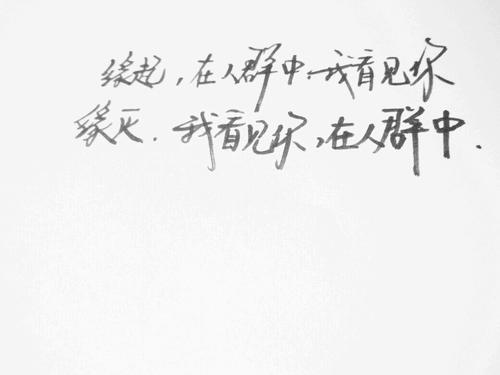 缘起,在人群中,我看见你
缘灭.我看见你,在人群中.